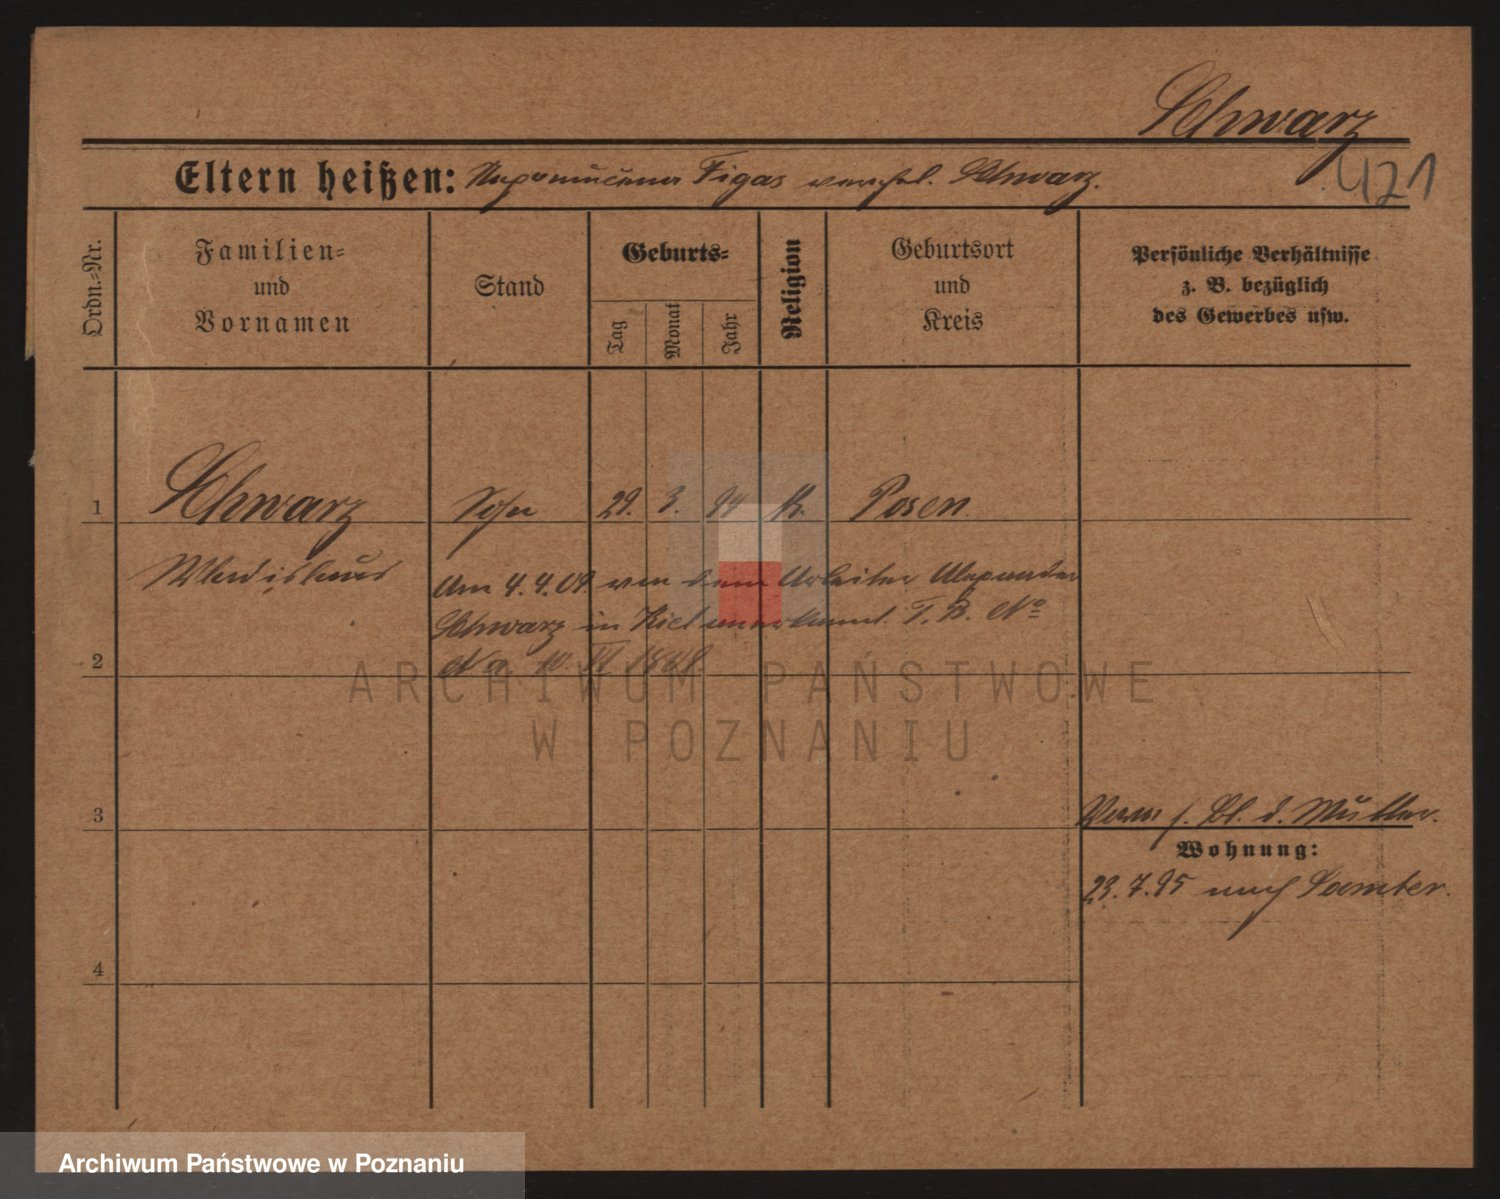 Schwarz
421
Eltern heißen: Nepomucena Figas verehel. Schwarz.
Ordn.-Nr.
Familien-
und
Vornamen
Stand
Geburts-
Tag
Monat
Jahr
Religion
Geburtsort
und
Kreis
Persönliche Verhältnisse
z. B. bezüglich
des Gewerbes usw.
1
Schwarz Sohn 29. 3. 94 K. Posen.
Wladislaus
Am 4.4.01 von dem Arbeiter Alexander
Schwarz in Kiel anerkannt. T. B. No
2
ARCHIWUM PAŃSTWOWE
W POZNANIU
3
f. Bl. d. Mutter.
Wohnung:
23.7.95 nach Samter.
4
Archiwum Państwowe w Poznaniu